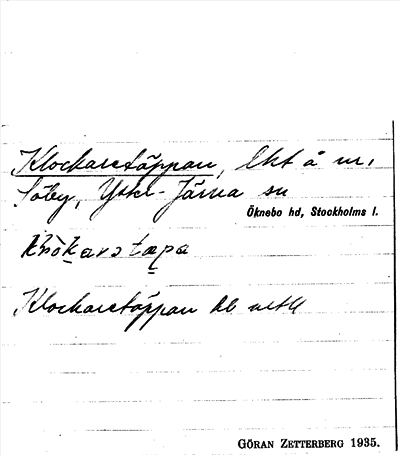 Klockaretäppan, lkt å m.
Söby, Ytter-Järna sn
Öknebo hd, Stockholms l.
Klockaretäppan
GÖRAN ZETTERBERG 1935.